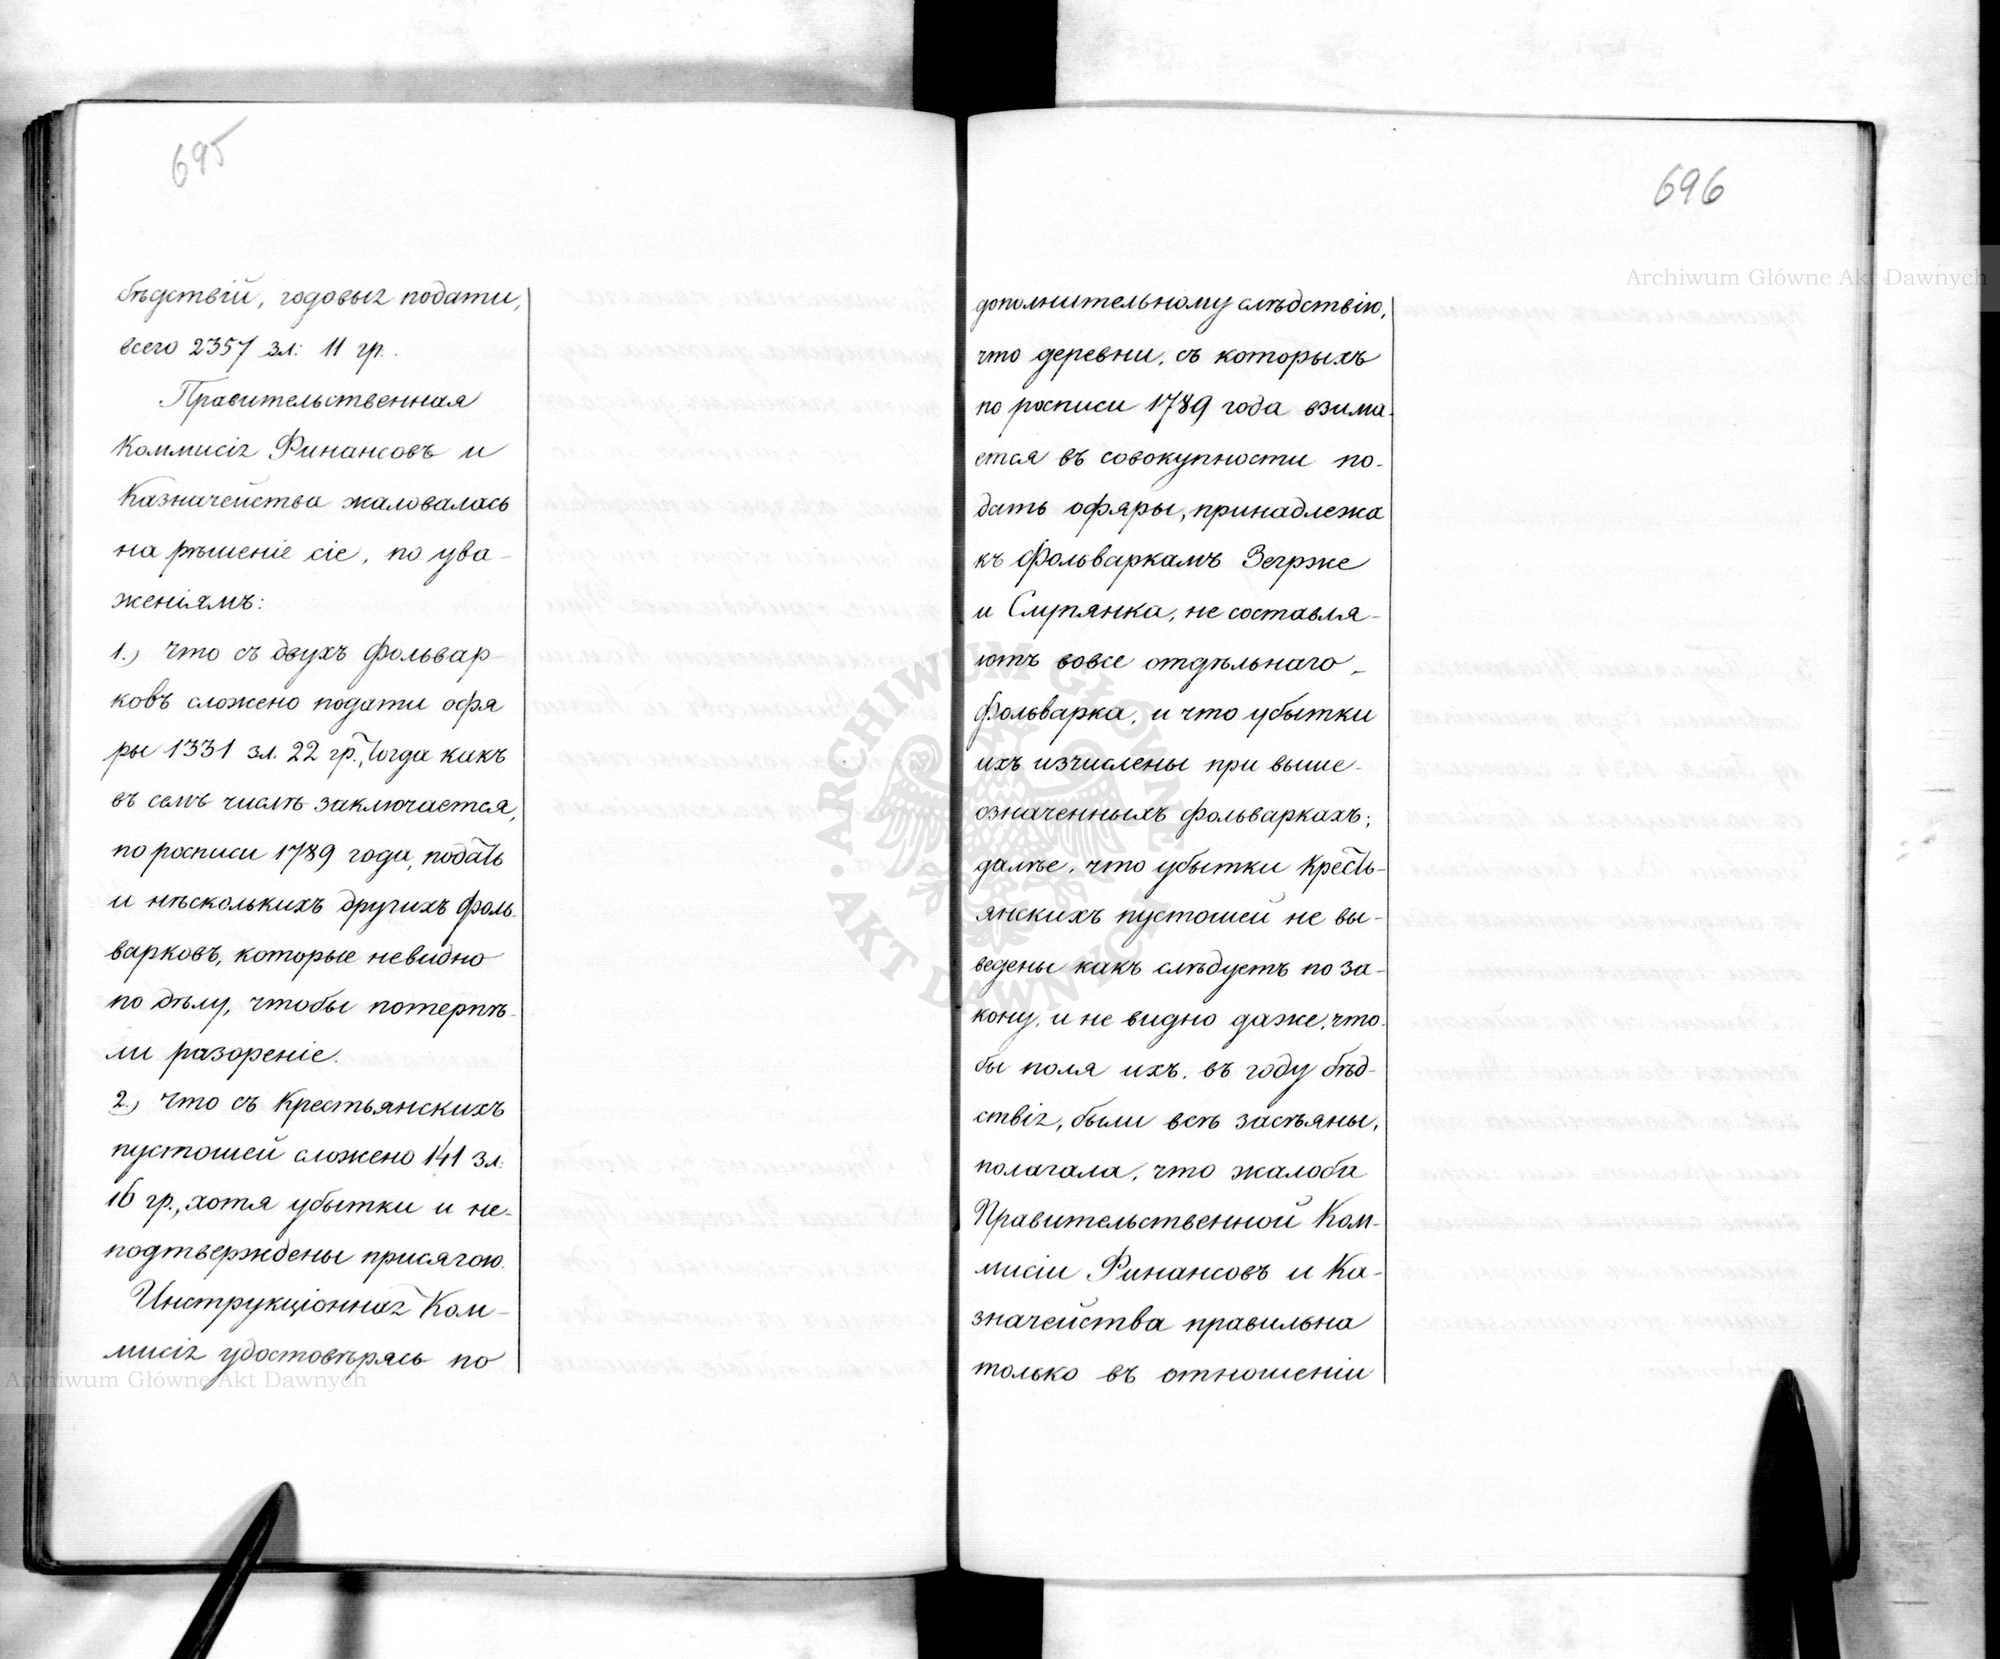 695
бѣдствій, годовыя подати,
всего 2357 зл: 11 гр.
Правительственная
Коммисія Финансовъ и
Казначейства жаловалась
на рѣшеніе сіе, по ува-
женіямъ:
1.) что съ двухъ фольвар-
ковъ сложено подати офя
ры 1331 зл. 22 гр., тогда какъ
въ семъ числѣ заключается,
по росписи 1789 года, подать
и нѣсколькихъ другихъ фоль-
варковъ, которые невидно
по дѣлу, чтобы потерпѣ-
ли разореніе.
2.) что съ Крестьянскихъ
пустошей сложено 141 зл:
16 гр., хотя убытки и не-
подтверждены присягою.
Инструкціонная Ком-
мисія удостовѣрясь по
696
дополнительному слѣдствію,
что деревни, съ которыхъ
по росписи 1789 года взима-
ется въ совокупности по-
дать офяры, принадлежа
къ фольваркамъ Зегрже
и Слупянка, не составля-
ютъ вовсе отдѣльнаго
фольварка, и что убытки
ихъ изчислены при выше-
означенныхъ фольваркахъ;
далѣе, что убытки Кресть-
янскихъ пустошей не вы-
ведены какъ слѣдуетъ по за-
кону, и не видно даже, что-
бы поля ихъ, въ году бѣд-
ствія, были всѣ засѣяны,
полагала, что жалоба
Правительственной Ком-
мисіи Финансовъ и Ка-
значейства правильна
только въ отношеніи
Archiwum Główne Akt Dawnych
Archiwum Główne Akt Dawnych
ARCHIWUM GŁÓWNE AKT DAWNYCH · AKT